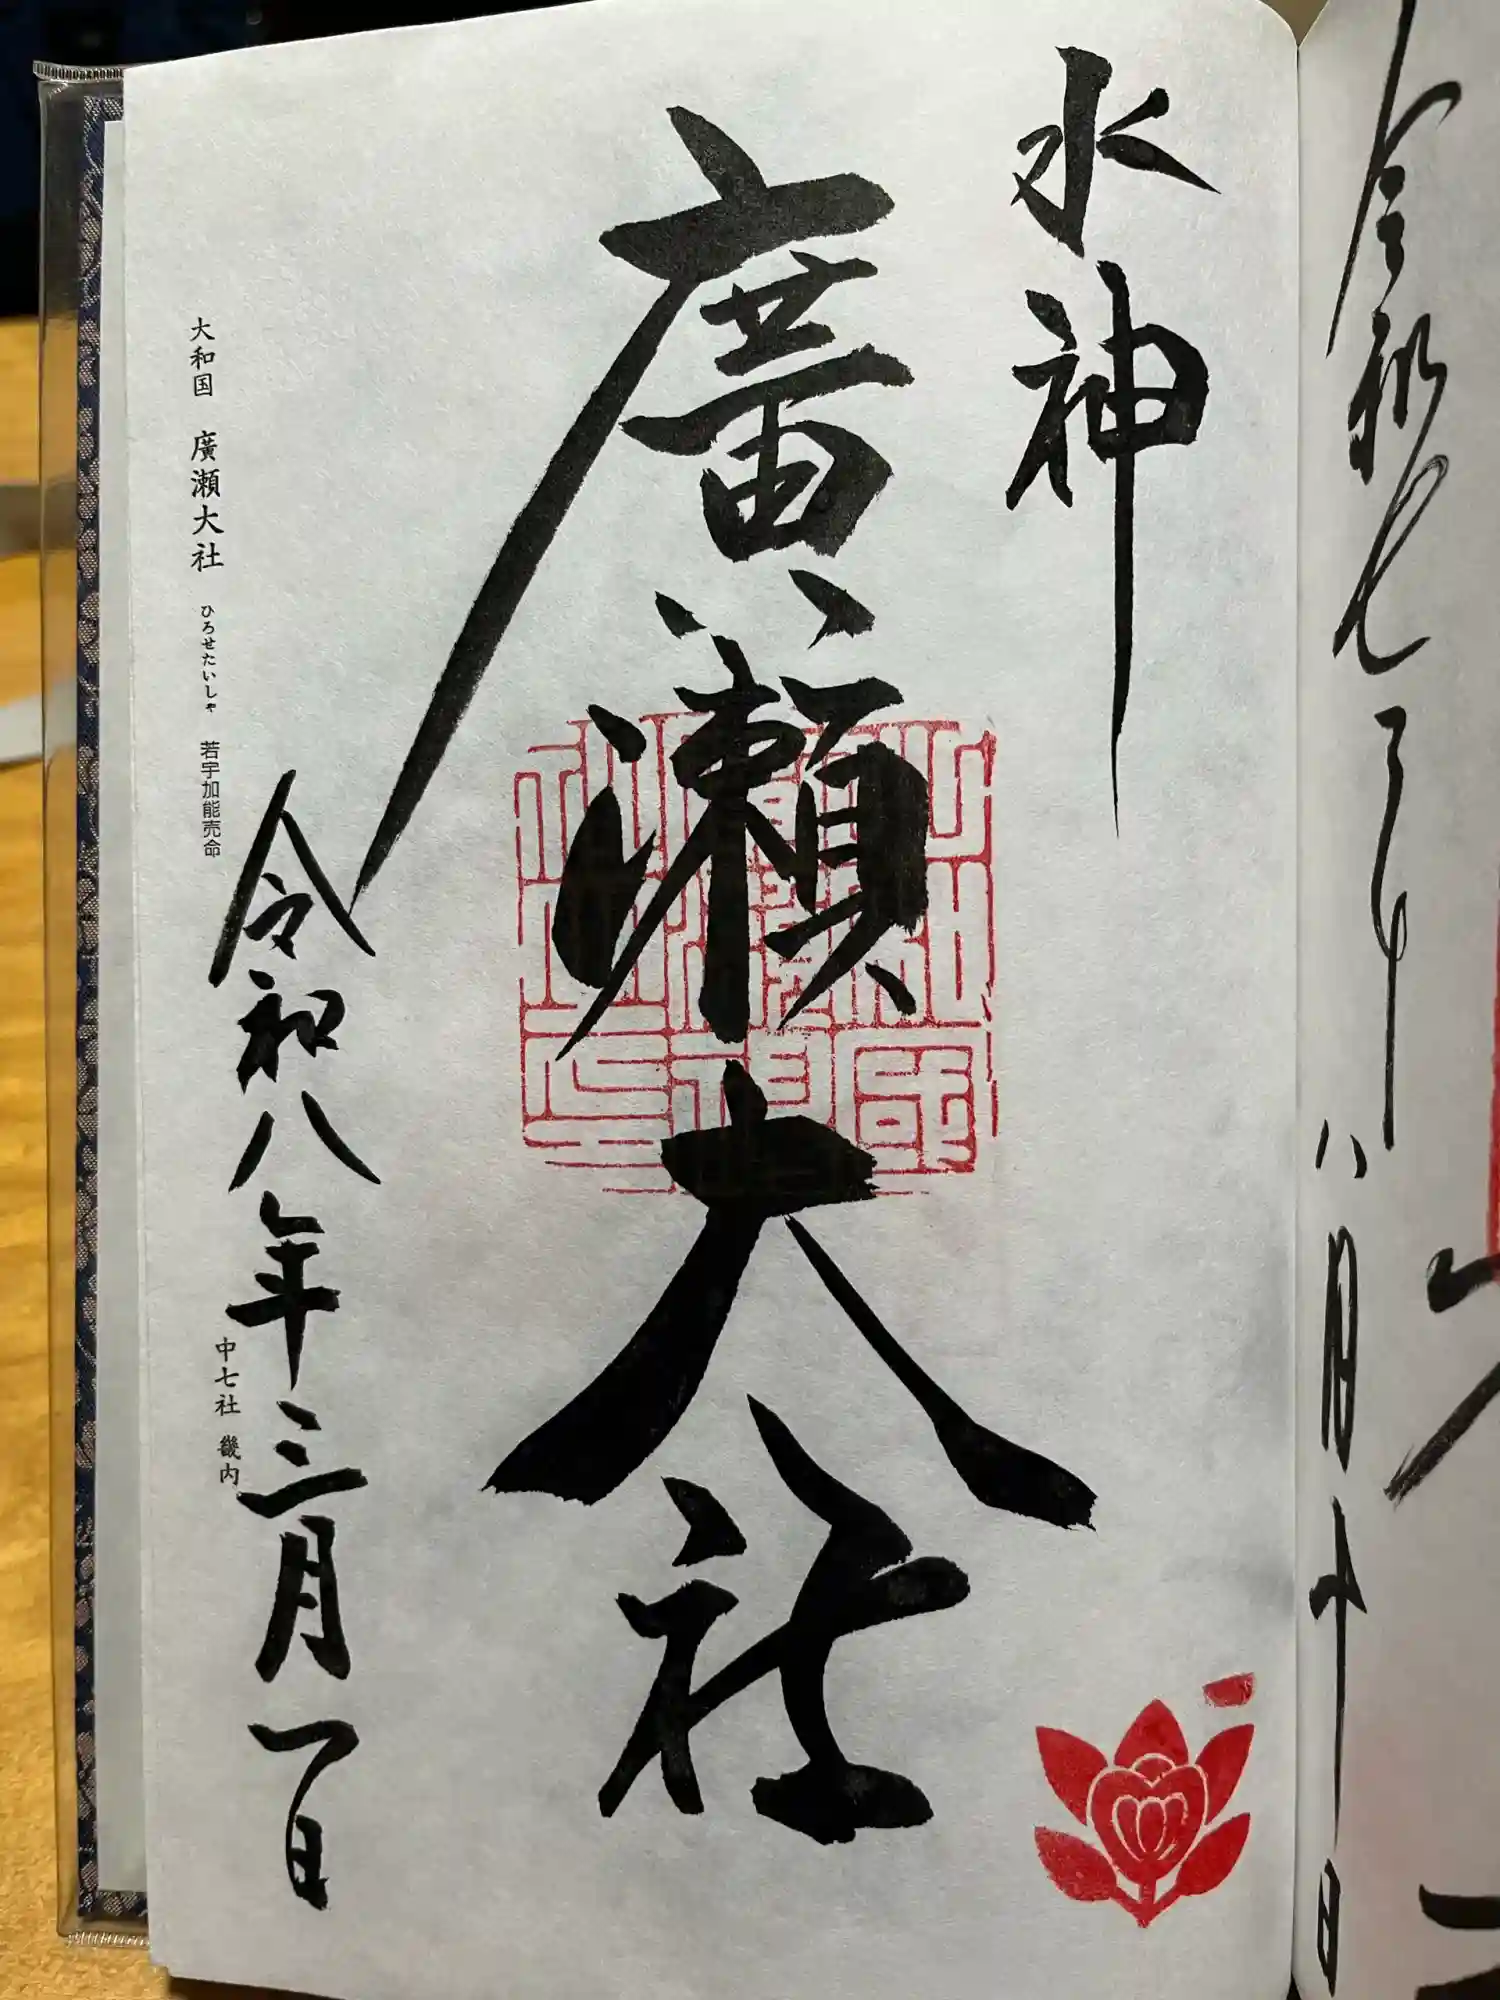 水神
廣瀬大社
令和八年三月一日
大和国 廣瀬大社 ひろせたいしゃ 若宇加能売命
中七社 畿内
令和七年
八月十日